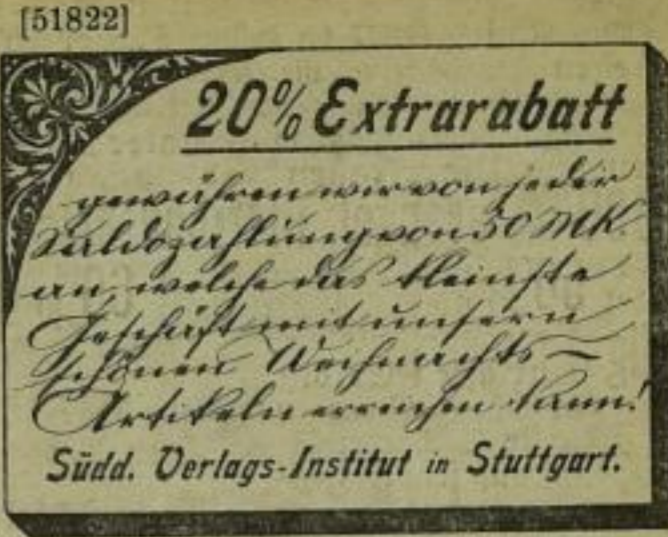 [51822]
20% Extrarabatt
gewähren wir von jeder
Saldozahlung von 50 Mk.
an, welche das kleinste
Geschäft mit unsern
schönen Weihnachts-
Artikeln erreichen kann!
Südd. Verlags-Institut in Stuttgart.